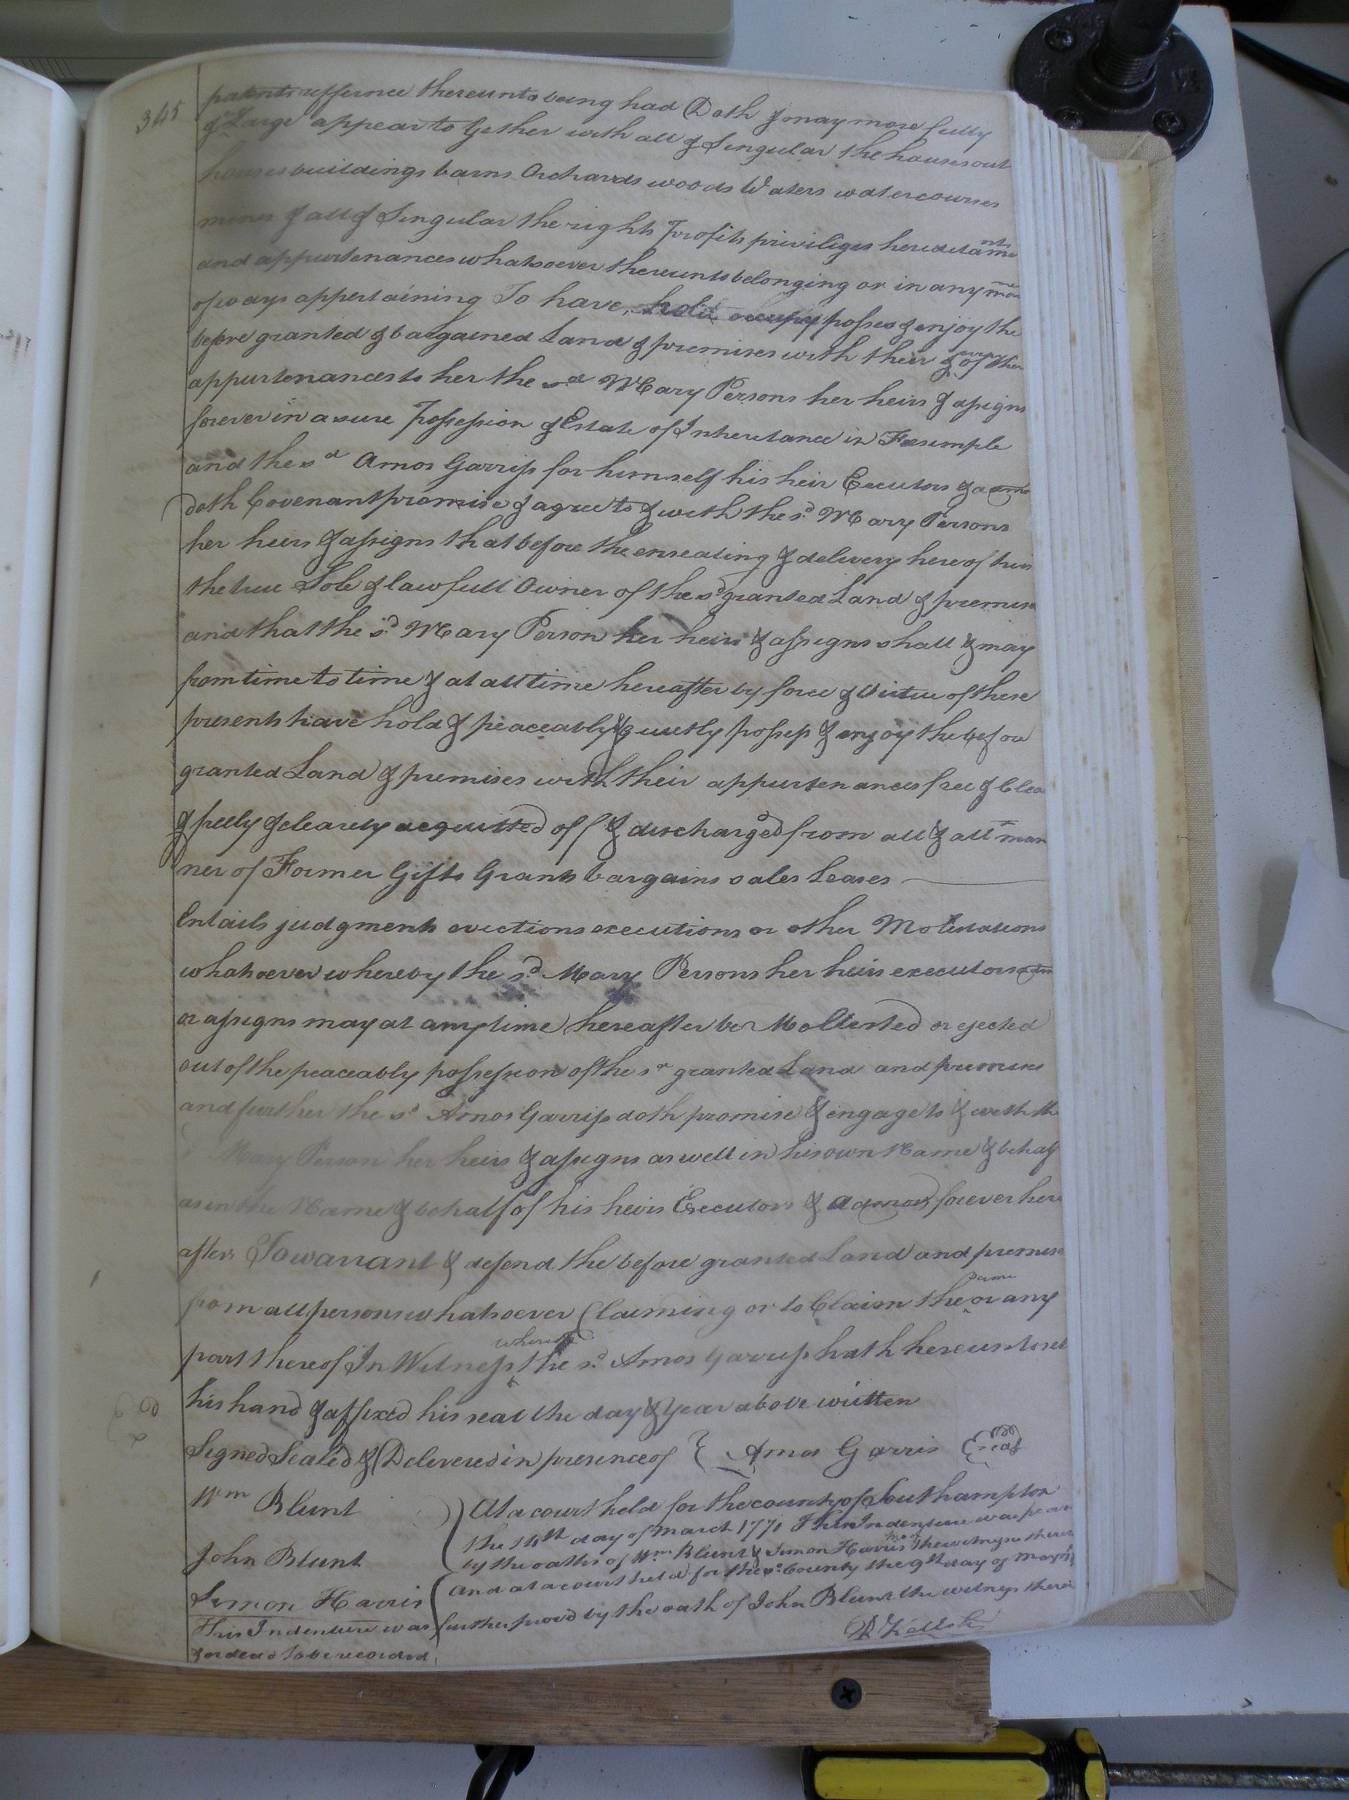 345
patents refference thereunto being had Doth & may more fully
& Large appear to Gether with all & Singular the houses out
houses buildings barns Orchards woods Waters watercourses
mines & all & Singular the rights Profits priviliges heredetaments
and appurtenances whatsoever thereunto belonging or in any man
of ways appertaining To have, hold occupy possess & enjoy the
before granted & bargained Land & premises with their & every of their
appurtenances to her the sd Mary Persons her heirs & assigns
forever in a sure Possession & Estate of Inheretance in Feesimple
and the sd Amos Garriss for himself his heir Executors & adms
doth Covenant promise & agree to & with the sd Mary Persons
her heirs & assigns that before the ensealing & delivery hereof he is
the true Sole & lawfull Owner of the sd granted Land & premises
and that the sd Mary Person her heirs & assigns shall & may
from time to time & at all time hereafter by force & Virtue of these
presents have hold & peaceably & quietly possess & enjoy the before
granted Land & premises with their appurtenances free & Clear
& freely & clearly acquitted off & discharged from all & all man
ner of Former Gifts Grants bargains sales Leases
Entails judgments evictions executions or other Molestations
whatsoever whereby the sd Mary Persons her heirs executors adm
or assigns may at any time hereafter be Mollested or ejected
out of the peaceably possession of the sd granted Land and premises
and further the sd Amos Garriss doth promise & engage to & with the
sd Mary Person her heirs & assigns as well in his own Name & behalf
as in the Name & behalf of his heirs Executors & admors forever here
after To warrant & defend the before granted Land and premises
from all persons whatsoever Claiming or to Claim the same or any
part thereof In Witness whereof the sd Amos Garriss hath hereunto set
his hand & affixed his seal the day & Year above written
Signed Sealed & Delivered in presence of } Amos Garris seal
Wm Blunt
John Blunt
Simon Harris
At a court held for the county of Southampton
the 14th day of March 1771 This Indenture was proved
by the oaths of Wm Blunt & Simon Harris two of the witnesses thereto
And at a court held for the sd County the 9th day of May
This Indenture was further proved by the oath of John Blunt the witness thereto
& ordered to be recorded